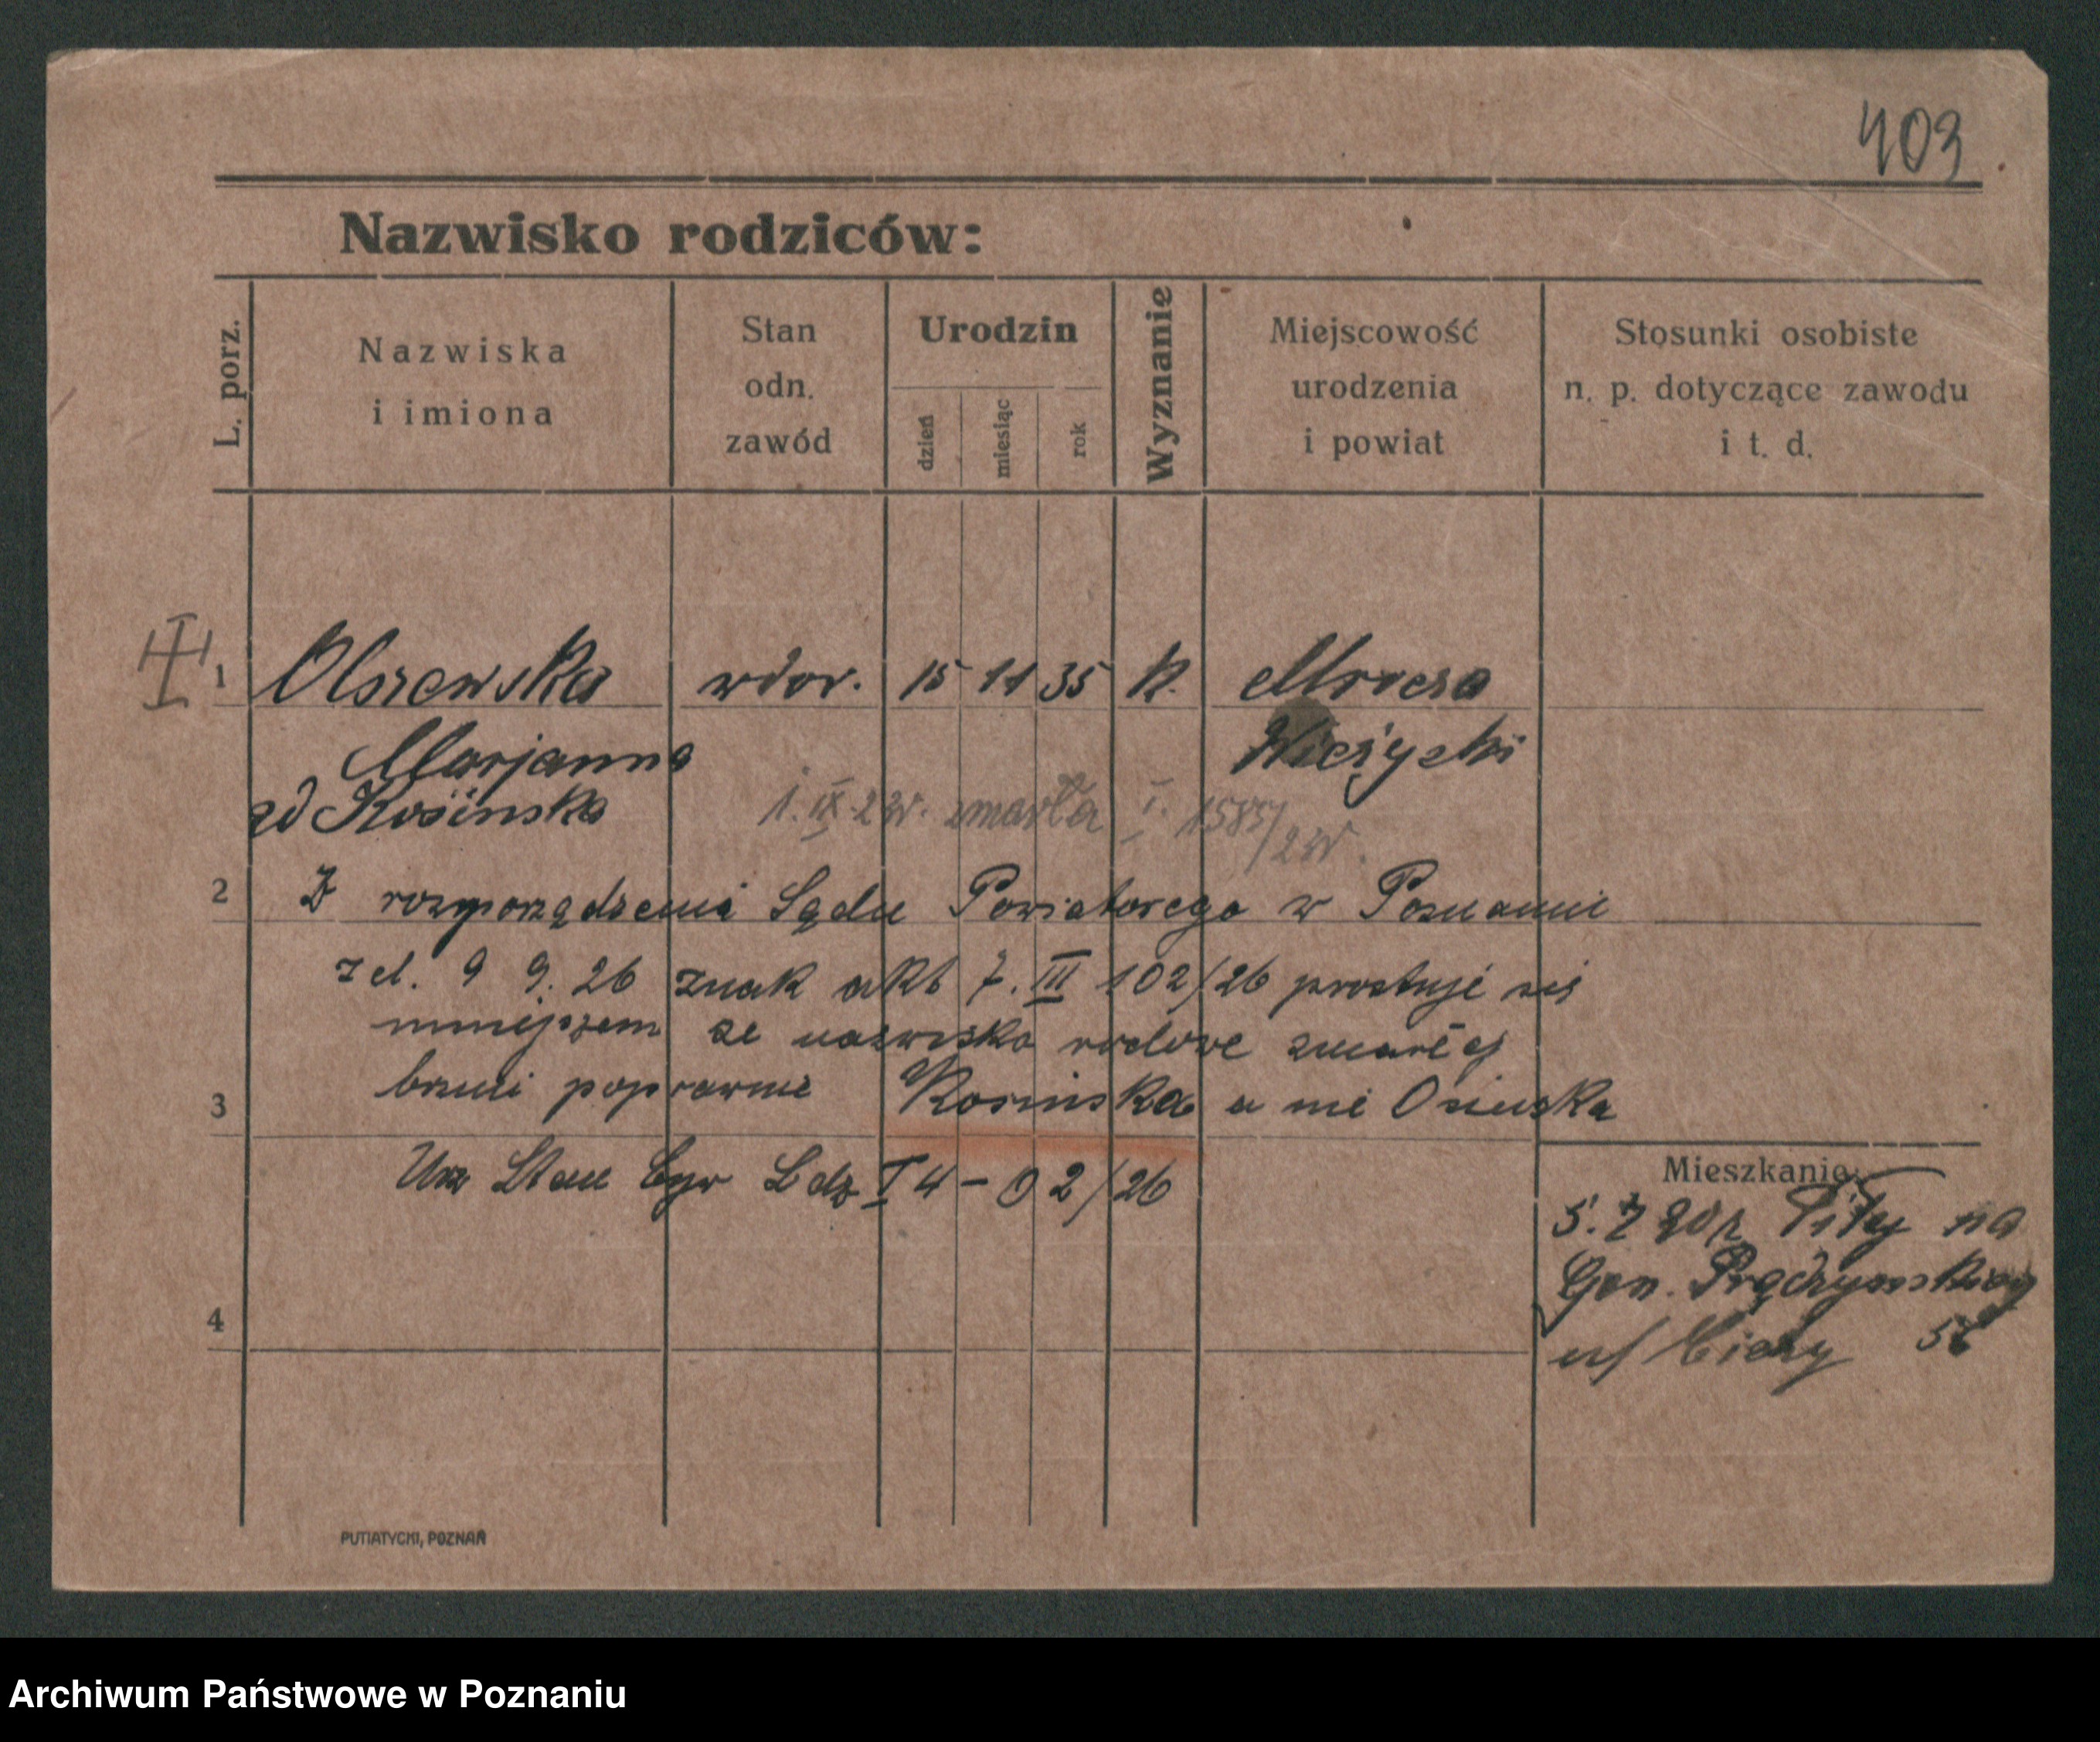 403
Nazwisko rodziców:
L. porz.
Nazwiska
i imiona
Stan
odn.
zawód
Urodzin
dzień
miesiąc
rok
Wyznanie
Miejscowość
urodzenia
i powiat
Stosunki osobiste
n. p. dotyczące zawodu
i t. d.
1 Olszewska wdow. 15 11 35 k.
Marjanna
zd Kosińska
zmarła I. 1585/
2 Z rozporządzenia Sądu Powiatowego w Poznaniu
z d. 9 9. 26 znak akt 7. III 102/26 prostuje się
niniejszem że nazwisko rodowe zmarłej
3 brzmi poprawnie Kosinska a nie Osinska
Urz Stan Cyw L dz I 4 - 02/26
Mieszkanie:
na
Gen. Prądzyńskiego
u/ Cichy 56
4
PUTIATYCKI, POZNAŃ
Archiwum Państwowe w Poznaniu